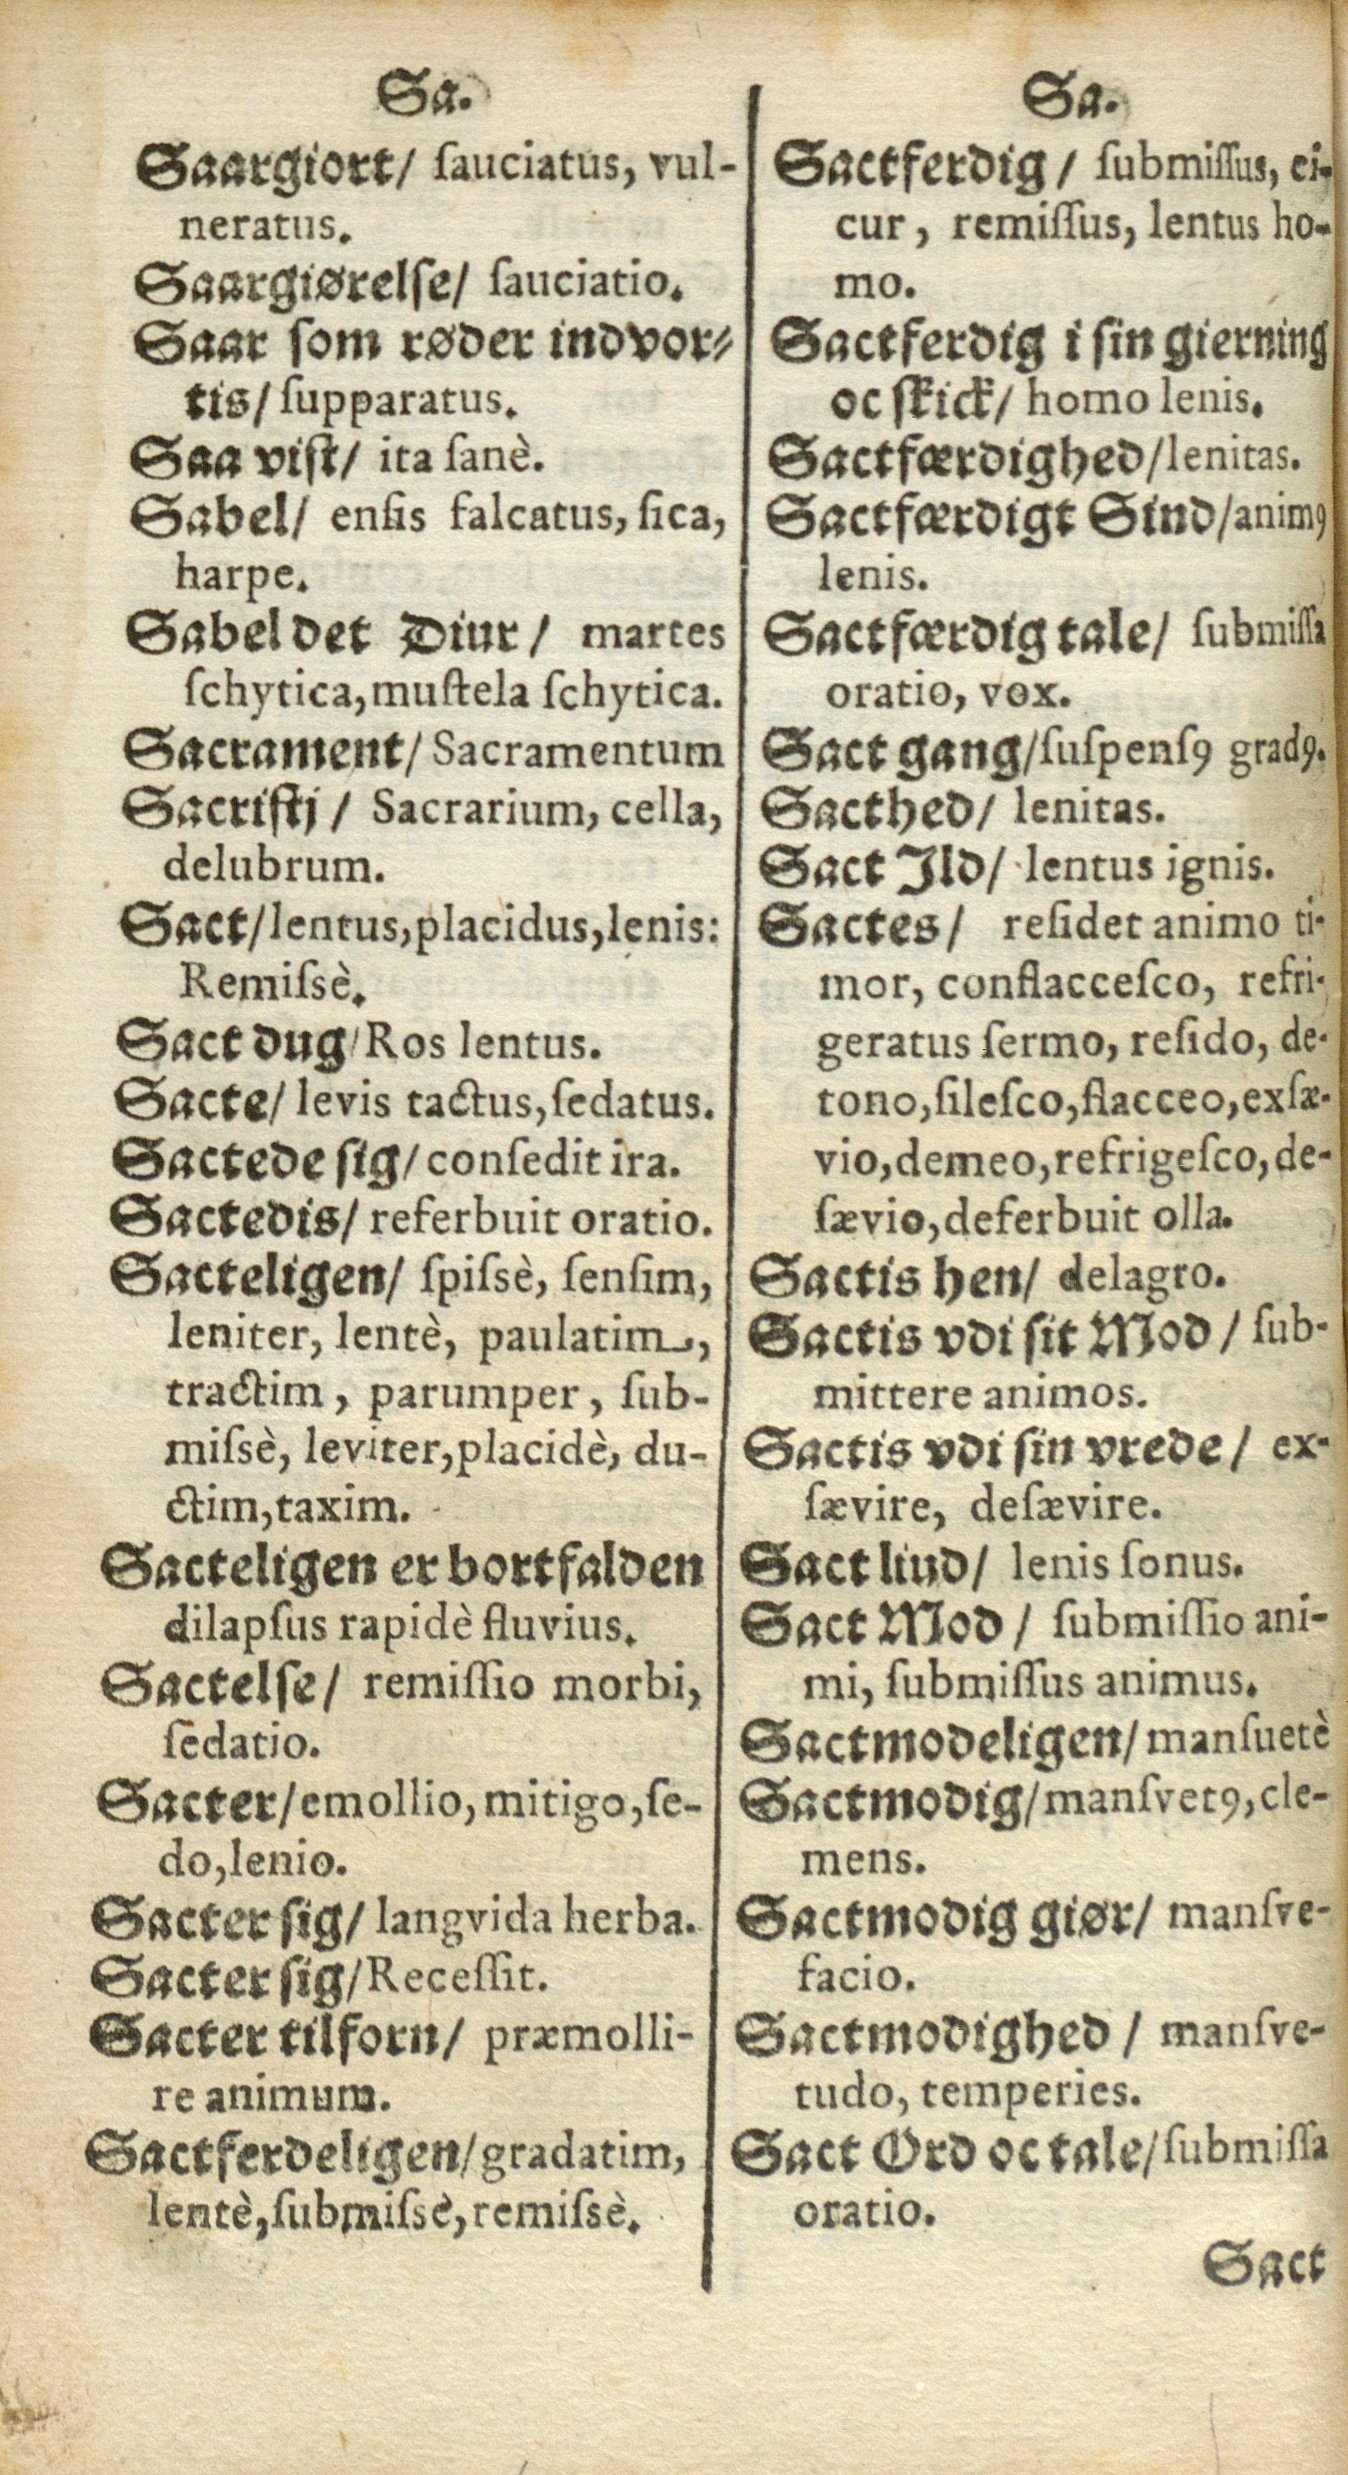 Sa.
Saargiort/ ſauciatus, vul-
neratus.
Saargiørelſe/ ſauciatio.
Saar ſom røder indvor⸗
tis/ ſupparatus.
Saa viſt/ ita ſanè.
Sabel/ enſis falcatus, ſica,
harpe.
Sabel det Diur/ martes
ſchytica, muſtela ſchytica.
Sacrament/ Sacramentum
Sacriſtj/ Sacrarium, cella,
delubrum.
Sact/ lentus, placidus, lenis:
Remiſsè.
Sact dug/ Ros lentus.
Sacte/ levis tactus, ſedatus.
Sactede ſig/ conſedit ira.
Sactedis/ referbuit oratio.
Sacteligen/ ſpiſsè, ſenſim,
leniter, lentè, paulatim,
tractim, parumper, ſub-
miſsè, leviter, placidè, du-
ctim, taxim.
Sacteligen er bortfalden
dilapſus rapidè fluvius.
Sactelſe/ remiſſio morbi,
ſedatio.
Sacter/ emollio, mitigo, ſe-
do, lenio.
Sacter ſig/ langvida herba.
Sacter ſig/ Receſſit.
Sacter tilforn/ præmolli-
re animum.
Sactferdeligen/ gradatim,
lentè, ſubmiſsè, remiſsè.
Sa.
Sactferdig/ ſubmiſſus, ci-
cur, remiſſus, lentus ho-
mo.
Sactferdig i ſin gierning
oc ſkick/ homo lenis.
Sactfærdighed/ lenitas.
Sactfærdigt Sind/ animꝰ
lenis.
Sactfærdig tale/ ſubmiſſa
oratio, vox.
Sact gang/ ſuſpenſꝰ gradꝰ.
Sacthed/ lenitas.
Sact Ild/ lentus ignis.
Sactes/ reſidet animo ti-
mor, conflacceſco, refri-
geratus ſermo, reſido, de-
tono, ſileſco, flacceo, exſæ-
vio, demeo, refrigeſco, de-
ſævio, deferbuit olla.
Sactis hen/ delagro.
Sactis vdi ſit Mod/ ſub-
mittere animos.
Sactis vdi ſin vrede/ ex-
ſævire, deſævire.
Sact liud/ lenis ſonus.
Sact Mod/ ſubmiſſio ani-
mi, ſubmiſſus animus.
Sactmodeligen/ manſuetè
Sactmodig/ manſvetꝰ, cle-
mens.
Sactmodig giør/ manſve-
facio.
Sactmodighed/ manſve-
tudo, temperies.
Sact Ord oc tale/ ſubmiſſa
oratio.
Sact